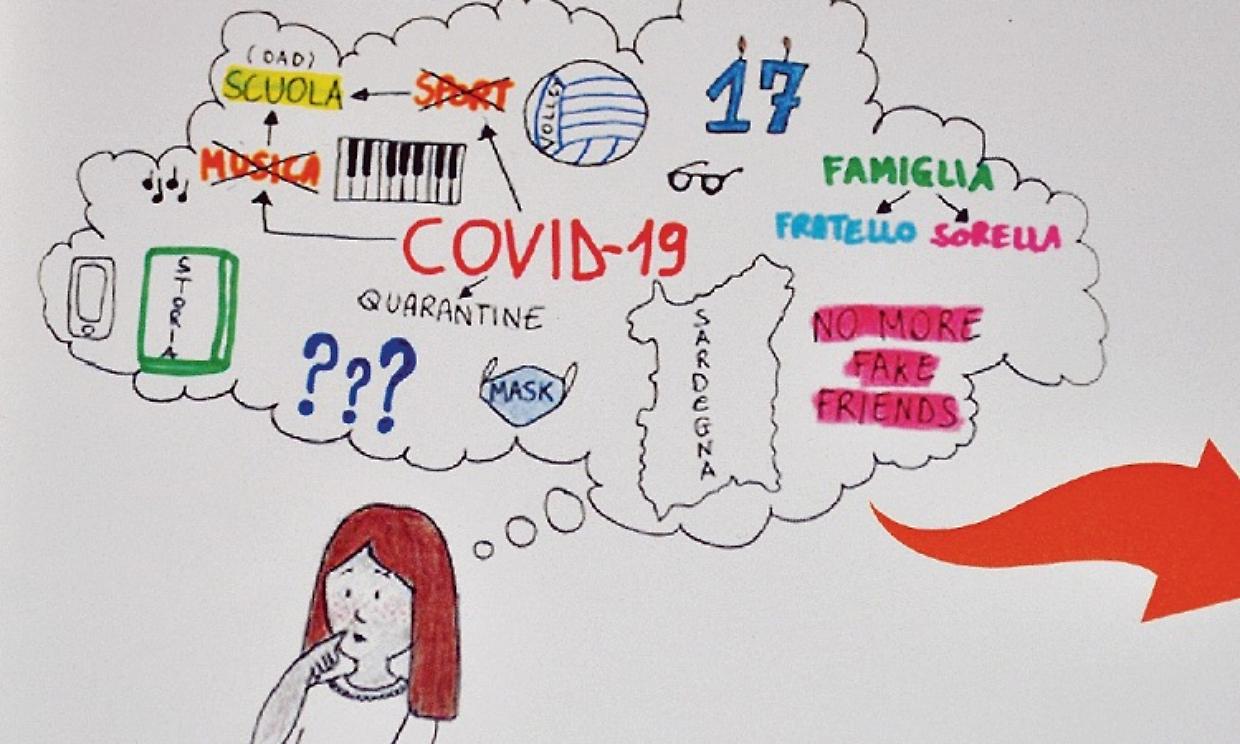 (DAD)
SCUOLA
SPORT
VOLLEY
17
MUSICA
FAMIGLIA
FRATELLO SORELLA
COVID-19
QUARANTINE
STORIA
???
MASK
SARDEGNA
NO MORE
FAKE
FRIENDS